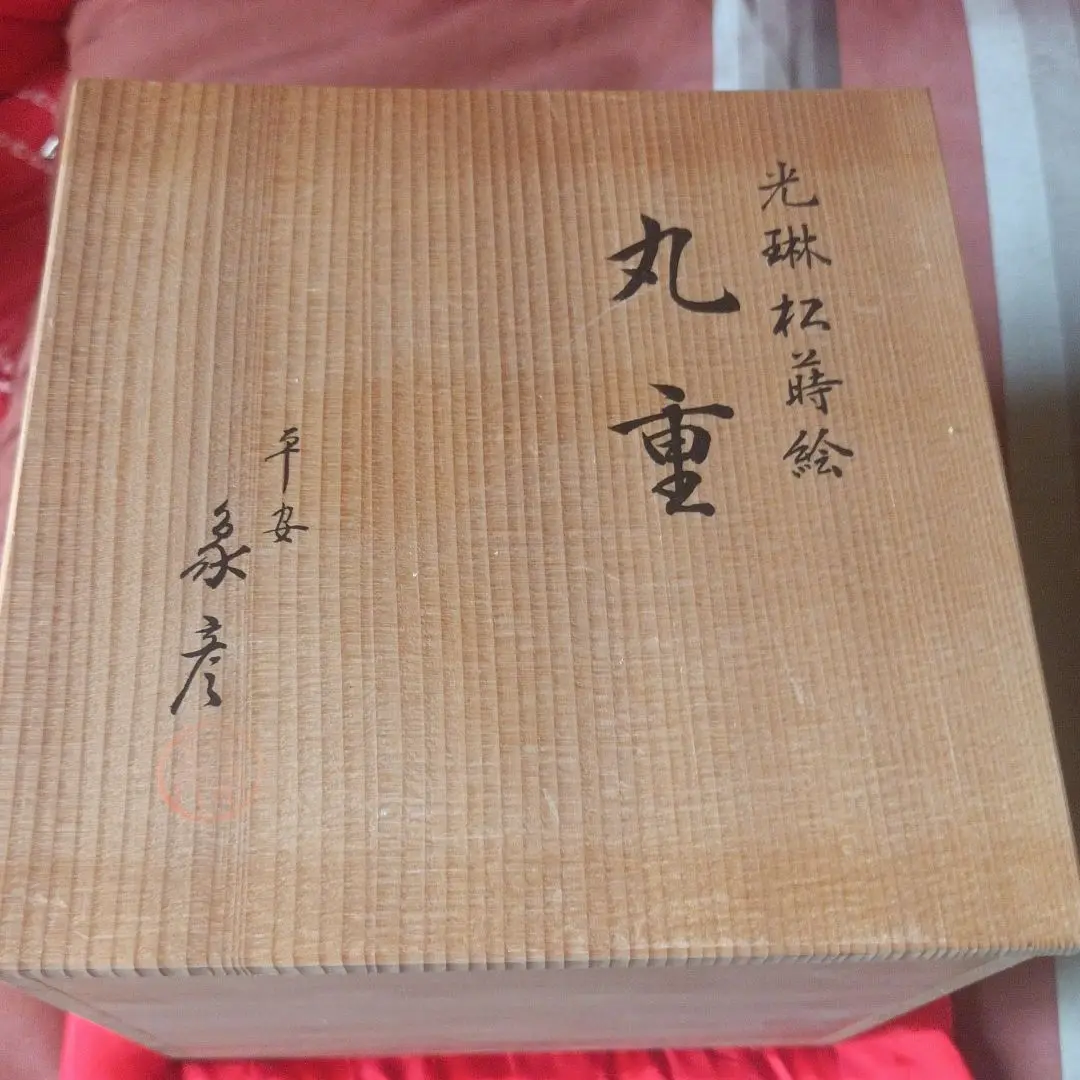 光琳松蒔絵
丸重
平安
象彦